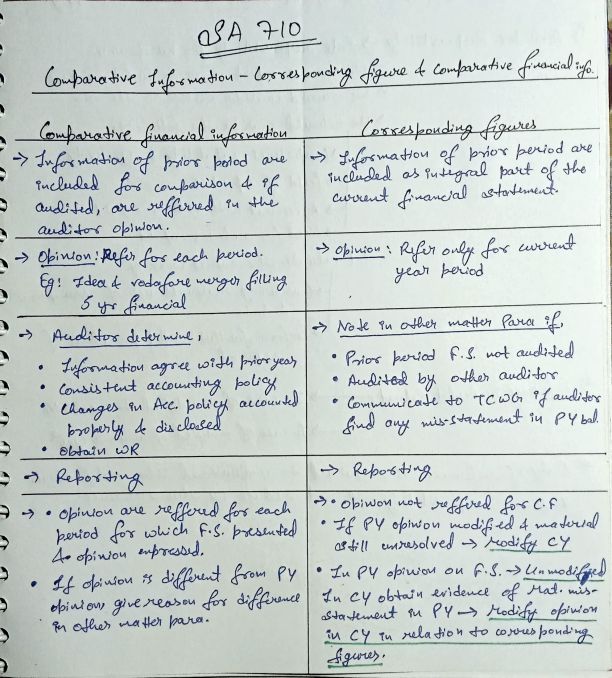 SA 710
Comparative Information - Corresponding figure & comparative financial info.
Comparative financial information
→ Information of prior peiod are
included for comparison & if
audited, are refferred in the
auditor opinion.
→ Opinion: Refer for each period.
Eg: Idea & vodafone merger filling
5 yr financial
→ Auditor determine,
• Information agree with prior year
• Consistent accounting policy
• Changes in Acc. policy accounted
properly & disclosed
• Obtain WR
→ Reporting
→ • Opinion are reffered for each
period for which F.S. presented
& opinion expressed.
• If opinion is different from PY
opinion, give reason for difference
in other matter para.
Corresponding figures
→ Information of prior period are
included as integral part of the
current financial statement.
→ Opinion: Refer only for current
year period
→ Note in other matter Para if,
• Prior period F.S. not audited
• Audited by other auditor
• Communicate to TCWG if auditor
find any mis-statement in PY bal.
→ Reporting
→ • Opinion not reffered for C.F
• If PY opinion modified & material
still unresolved → Modify CY
• In PY opinion on F.S. → Unmodified
In CY obtain evidence of Mat. mis-
statement in PY → Modify opinion
in CY in relation to corresponding
figures.